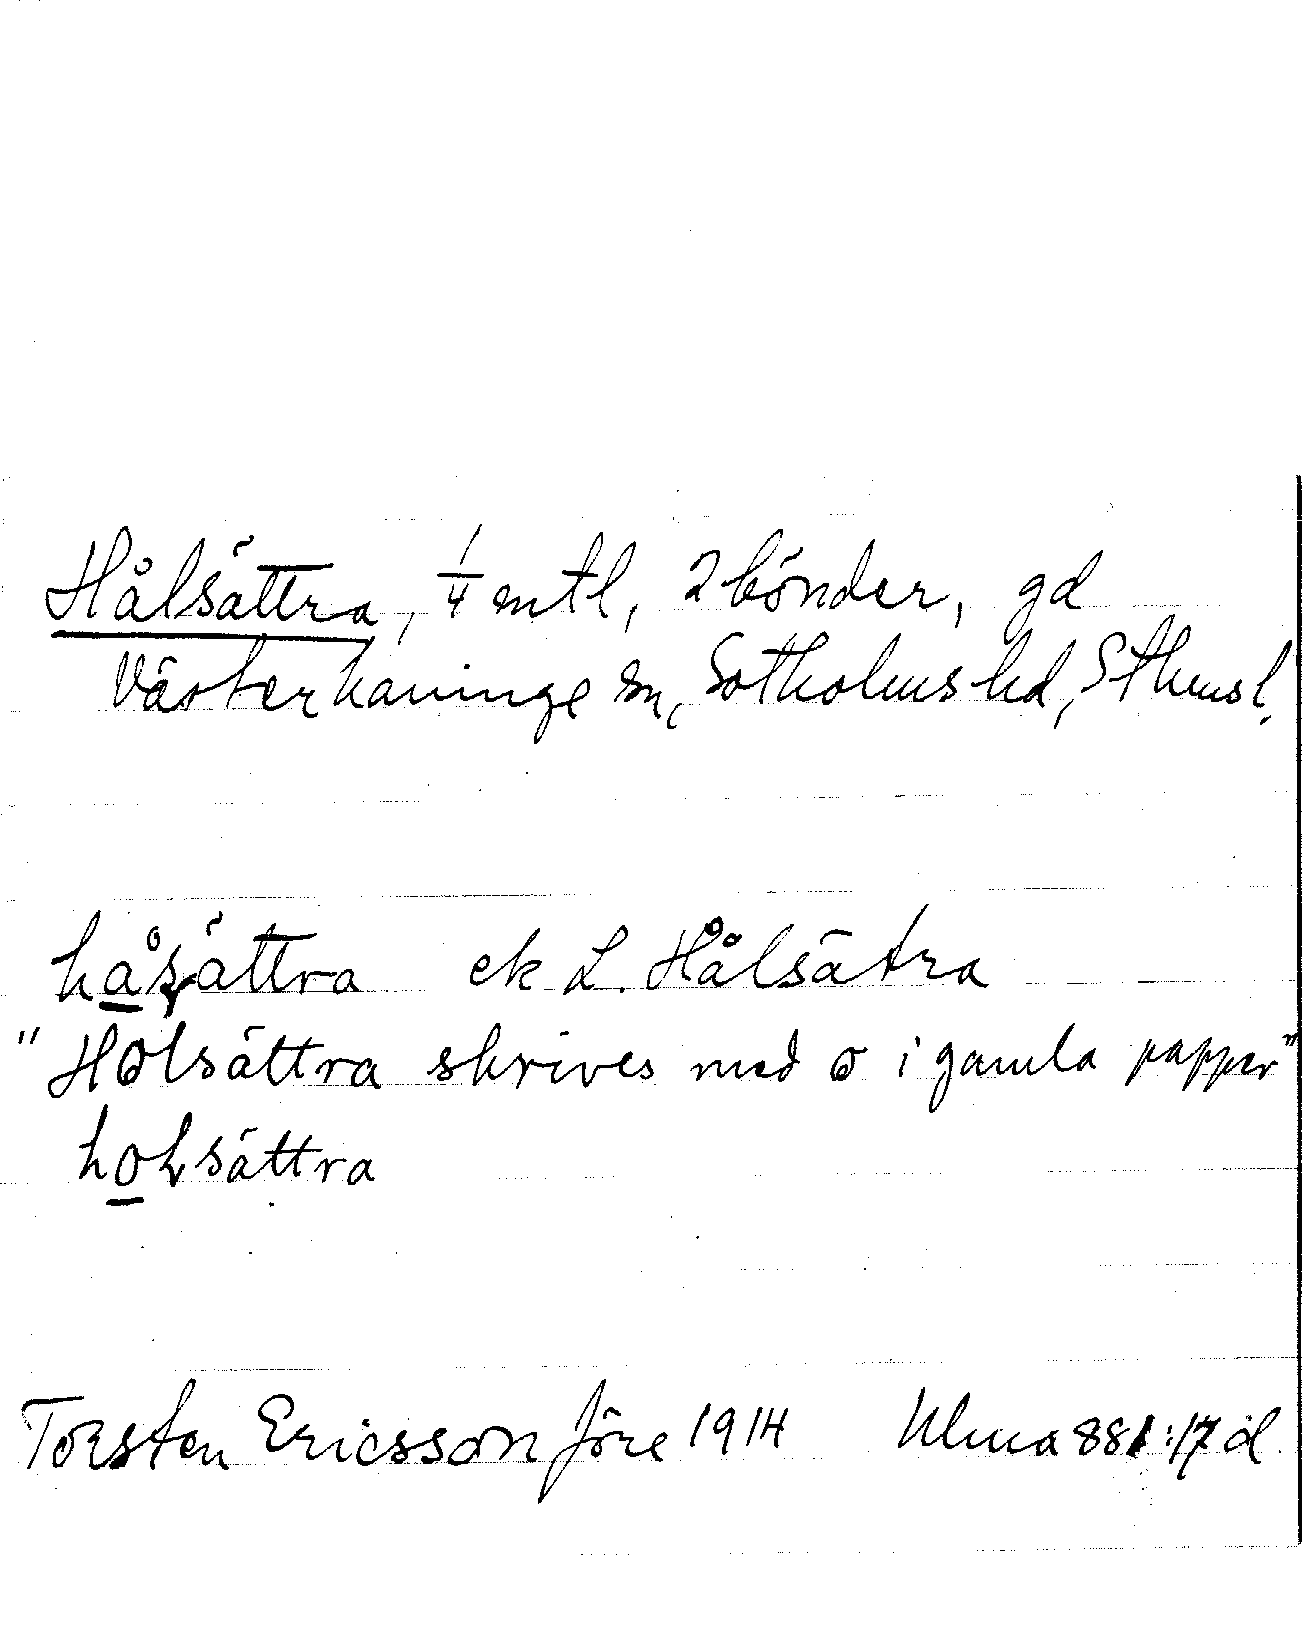 Hålsättra, 1/4 mtl, 2 bönder, gd
Västerhaninge sn, Sotholms hd, Sthmsl.
håsättra ek L. Hålsätra
"Holsättra skrives med o i gamla papper"
holsättra
Torsten Ericsson före 1914 Ulma 881:17 d